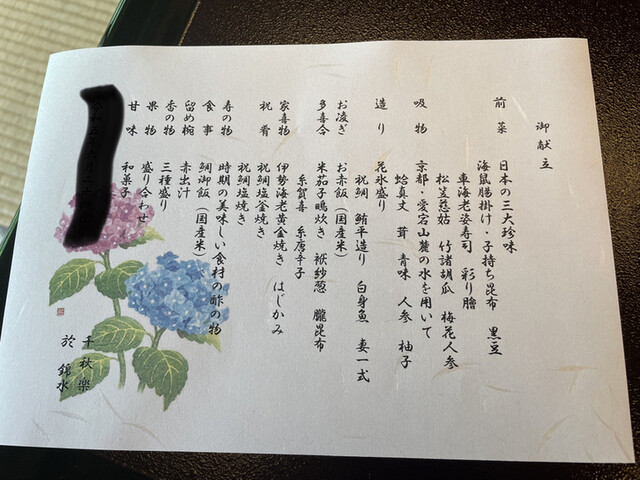 御献立
前菜 日本の三大珍味
海鼠腸掛け・子持ち昆布 黒豆
車海老姿寿司 彩り膾
松笠慈姑 竹諸胡瓜 梅花人参
吸物 京都・愛宕山麓の水を用いて
蛤真丈 茸 青味 人参 柚子
造り 花氷盛り
祝鯛 鮪平造り 白身魚 妻一式
お凌ぎ お赤飯(国産米)
多喜合 米茄子鴫炊き 袱紗葱 朧昆布
糸賀喜 糸唐辛子
家喜物 伊勢海老黄金焼き はじかみ
祝肴 祝鯛塩釜焼き
祝鯛塩焼き
寿の物 時期の美味しい食材の酢の物
食事 鯛御飯(国産米)
留め椀 赤出汁
香の物 三種盛り
果物 盛り合わせ
甘味 和菓子
千秋楽
於 錦水